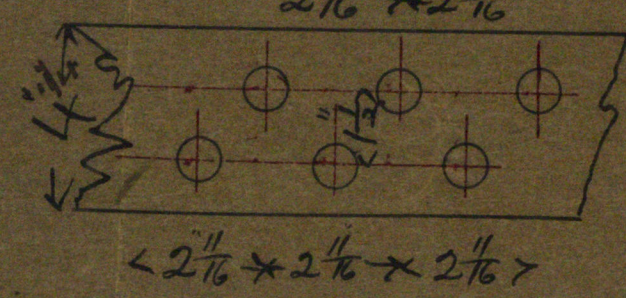 2 11/16 × 2 11/16
4 1/4"
1 1/2"
< 2 11/16" × 2 11/16" × 2 11/16 >